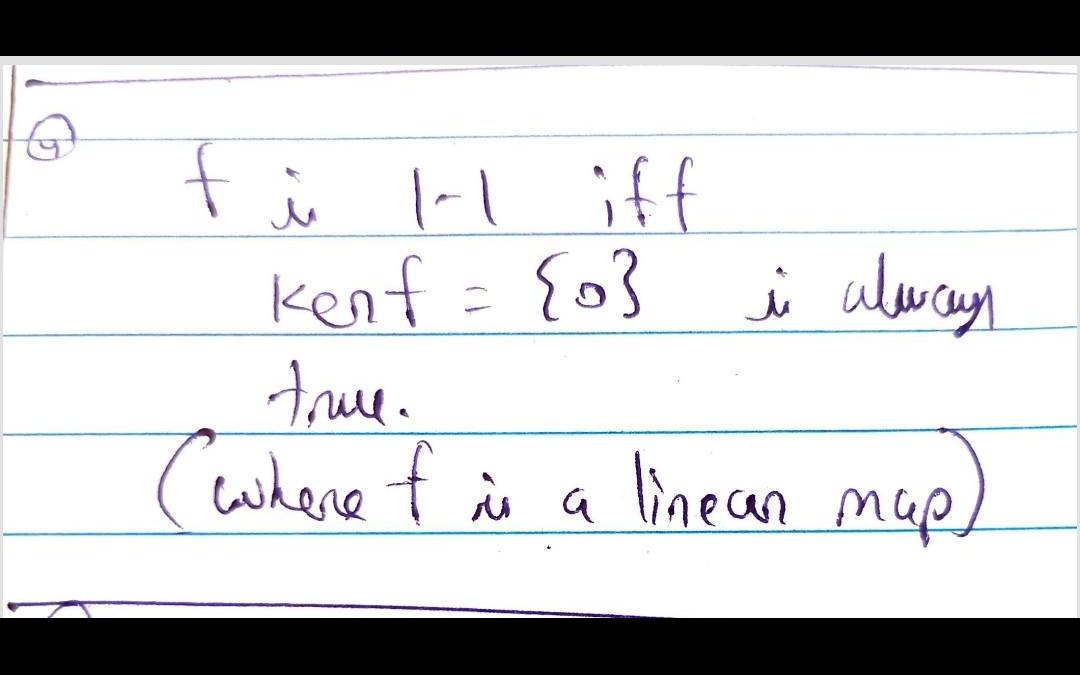 ④
f is 1-1 iff
kerf = {0} is always
true.
(where f is a linear map)